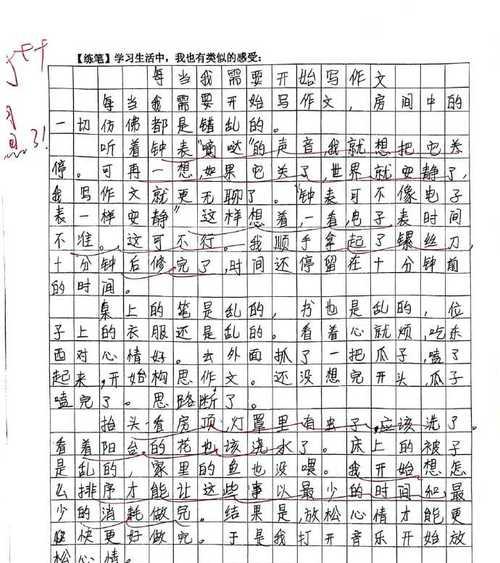 【练笔】学习生活中，我也有类似的感受：
每当我需要开始写作文
每当我需要开始写作文，房间中的
一切仿佛都是错乱的。
听着钟表"嘀哒"的声音，我就想把它关
停。可再一想如果它关了，世界就安静了，
我写作文就更无聊了。"钟表可不像电子
表一样安静"这样想着，一看，电子表时间
不准。这可不行。我顺手拿起了螺丝刀，
十分钟后修完了，时间还停留在十分钟前
的时间。
桌上的笔是乱的，书也是乱的，位
子上的衣服还是乱的。看着心就烦，吃东
西对心情好。去外面抓了一把瓜子，嗑了
起来，开始构思作文。还没想完开头，瓜子
嗑完了。思路断了。
抬头一看房顶，灯罩里有虫子，应该洗了。
看着阳台的花也该浇水了。床上的被子
是乱的，家里的鱼也没喂。我开始想怎
么排序才能让这些事以最少的时间和最
少的消耗做完。结果是，放松心情才能更
快更好做完。于是我打开音乐开始放
松心情。